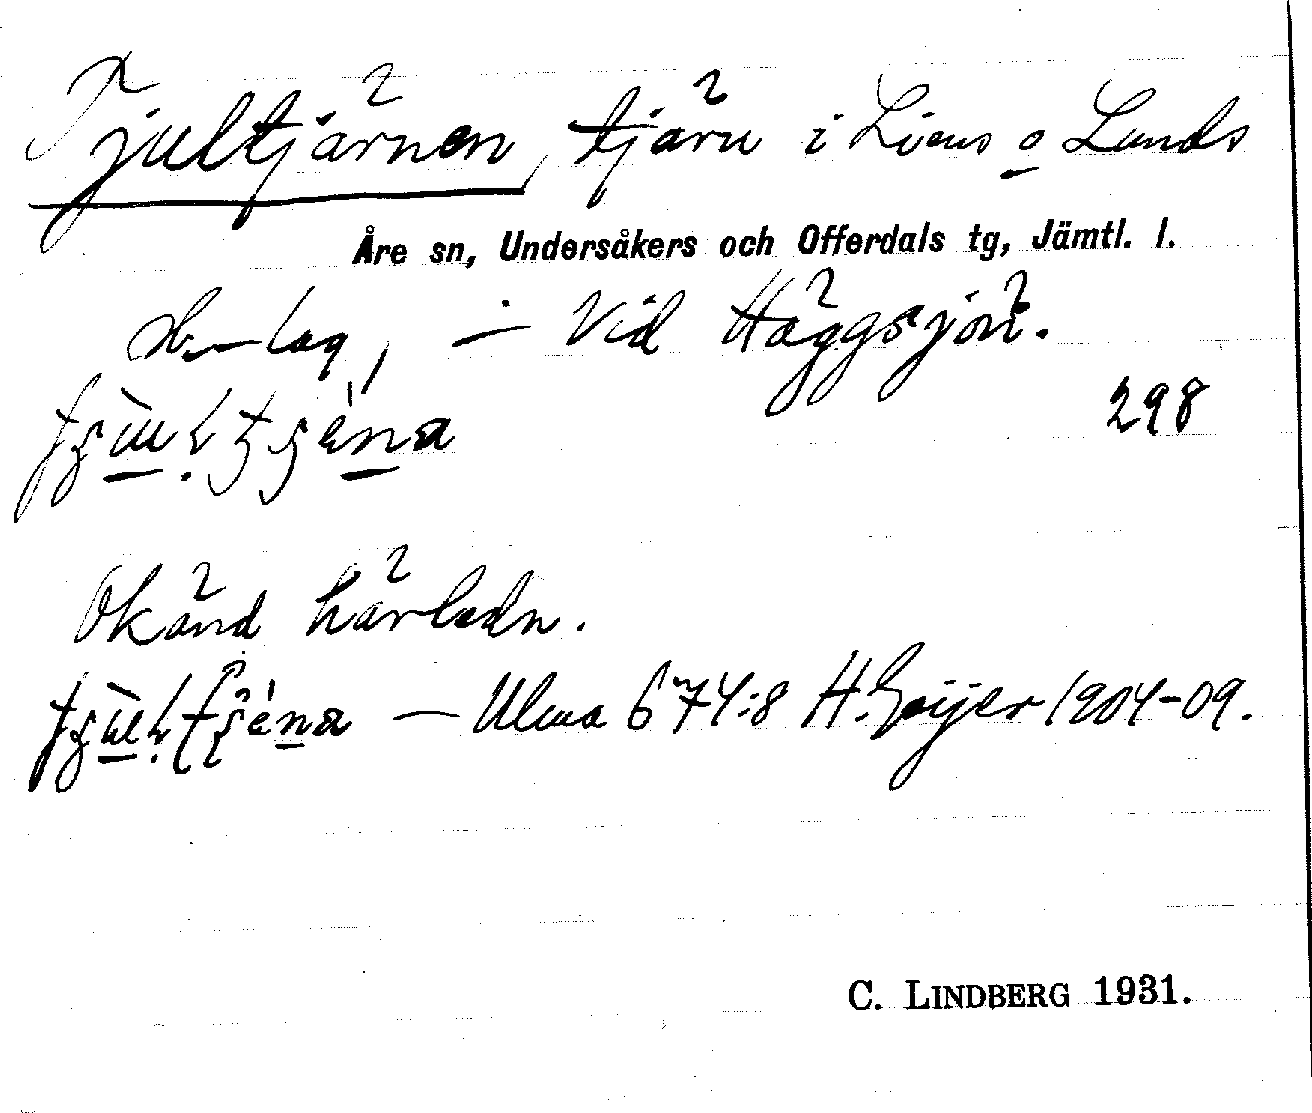 Tjultjärnen, tjärn i Liens o Lunds
Åre sn, Undersåkers och Offerdals tg, Jämtl. l.
lag, — Vid Häggsjön.
298
Okänd härledn.
— Ulma 674:8 H. Geijer 1904-09.
C. LINDBERG 1931.